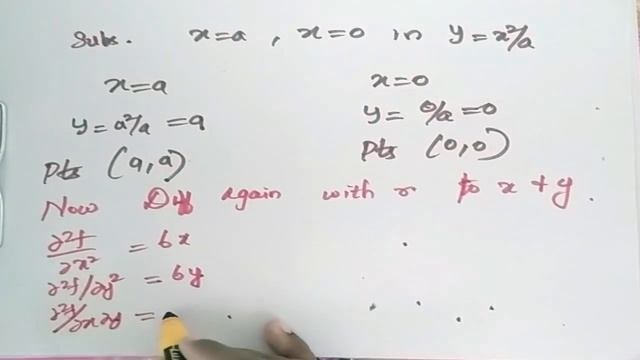 Subs. x=a , x=0 in y=x²/a
x=a
y=a²/a =a
Pts (a,a)
x=0
y= 0/a =0
Pts (0,0)
Now Diff again with r to x + y.
∂²f/∂x² = 6x
∂²f/∂y² = 6y
∂²f/∂x∂y =